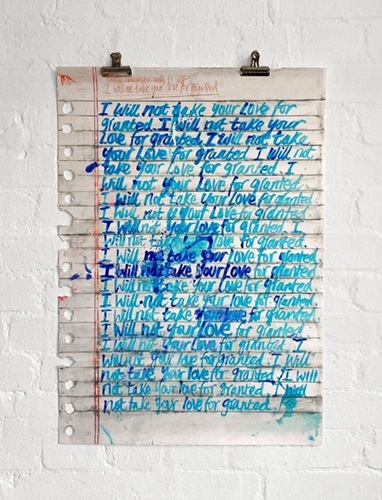 I will not take your love for granted
I will not take your love for
granted. I will not take your
love for granted. I will not take
your love for granted. I will not
take your love for granted. I
will not your love for granted.
I will not take your love for granted.
I will not your love for granted.
I will not your love for granted. I
will not take love for granted.
I will not take your love for granted.
I will not take your love for granted
I will not take your love for granted.
I will not take your love for granted.
I will not take your love for granted
I will not your love for granted
I will not your love for granted. I
will not your love for granted. I will
not take your love for granted. I will
not take your love for granted. I will
not take your love for granted.